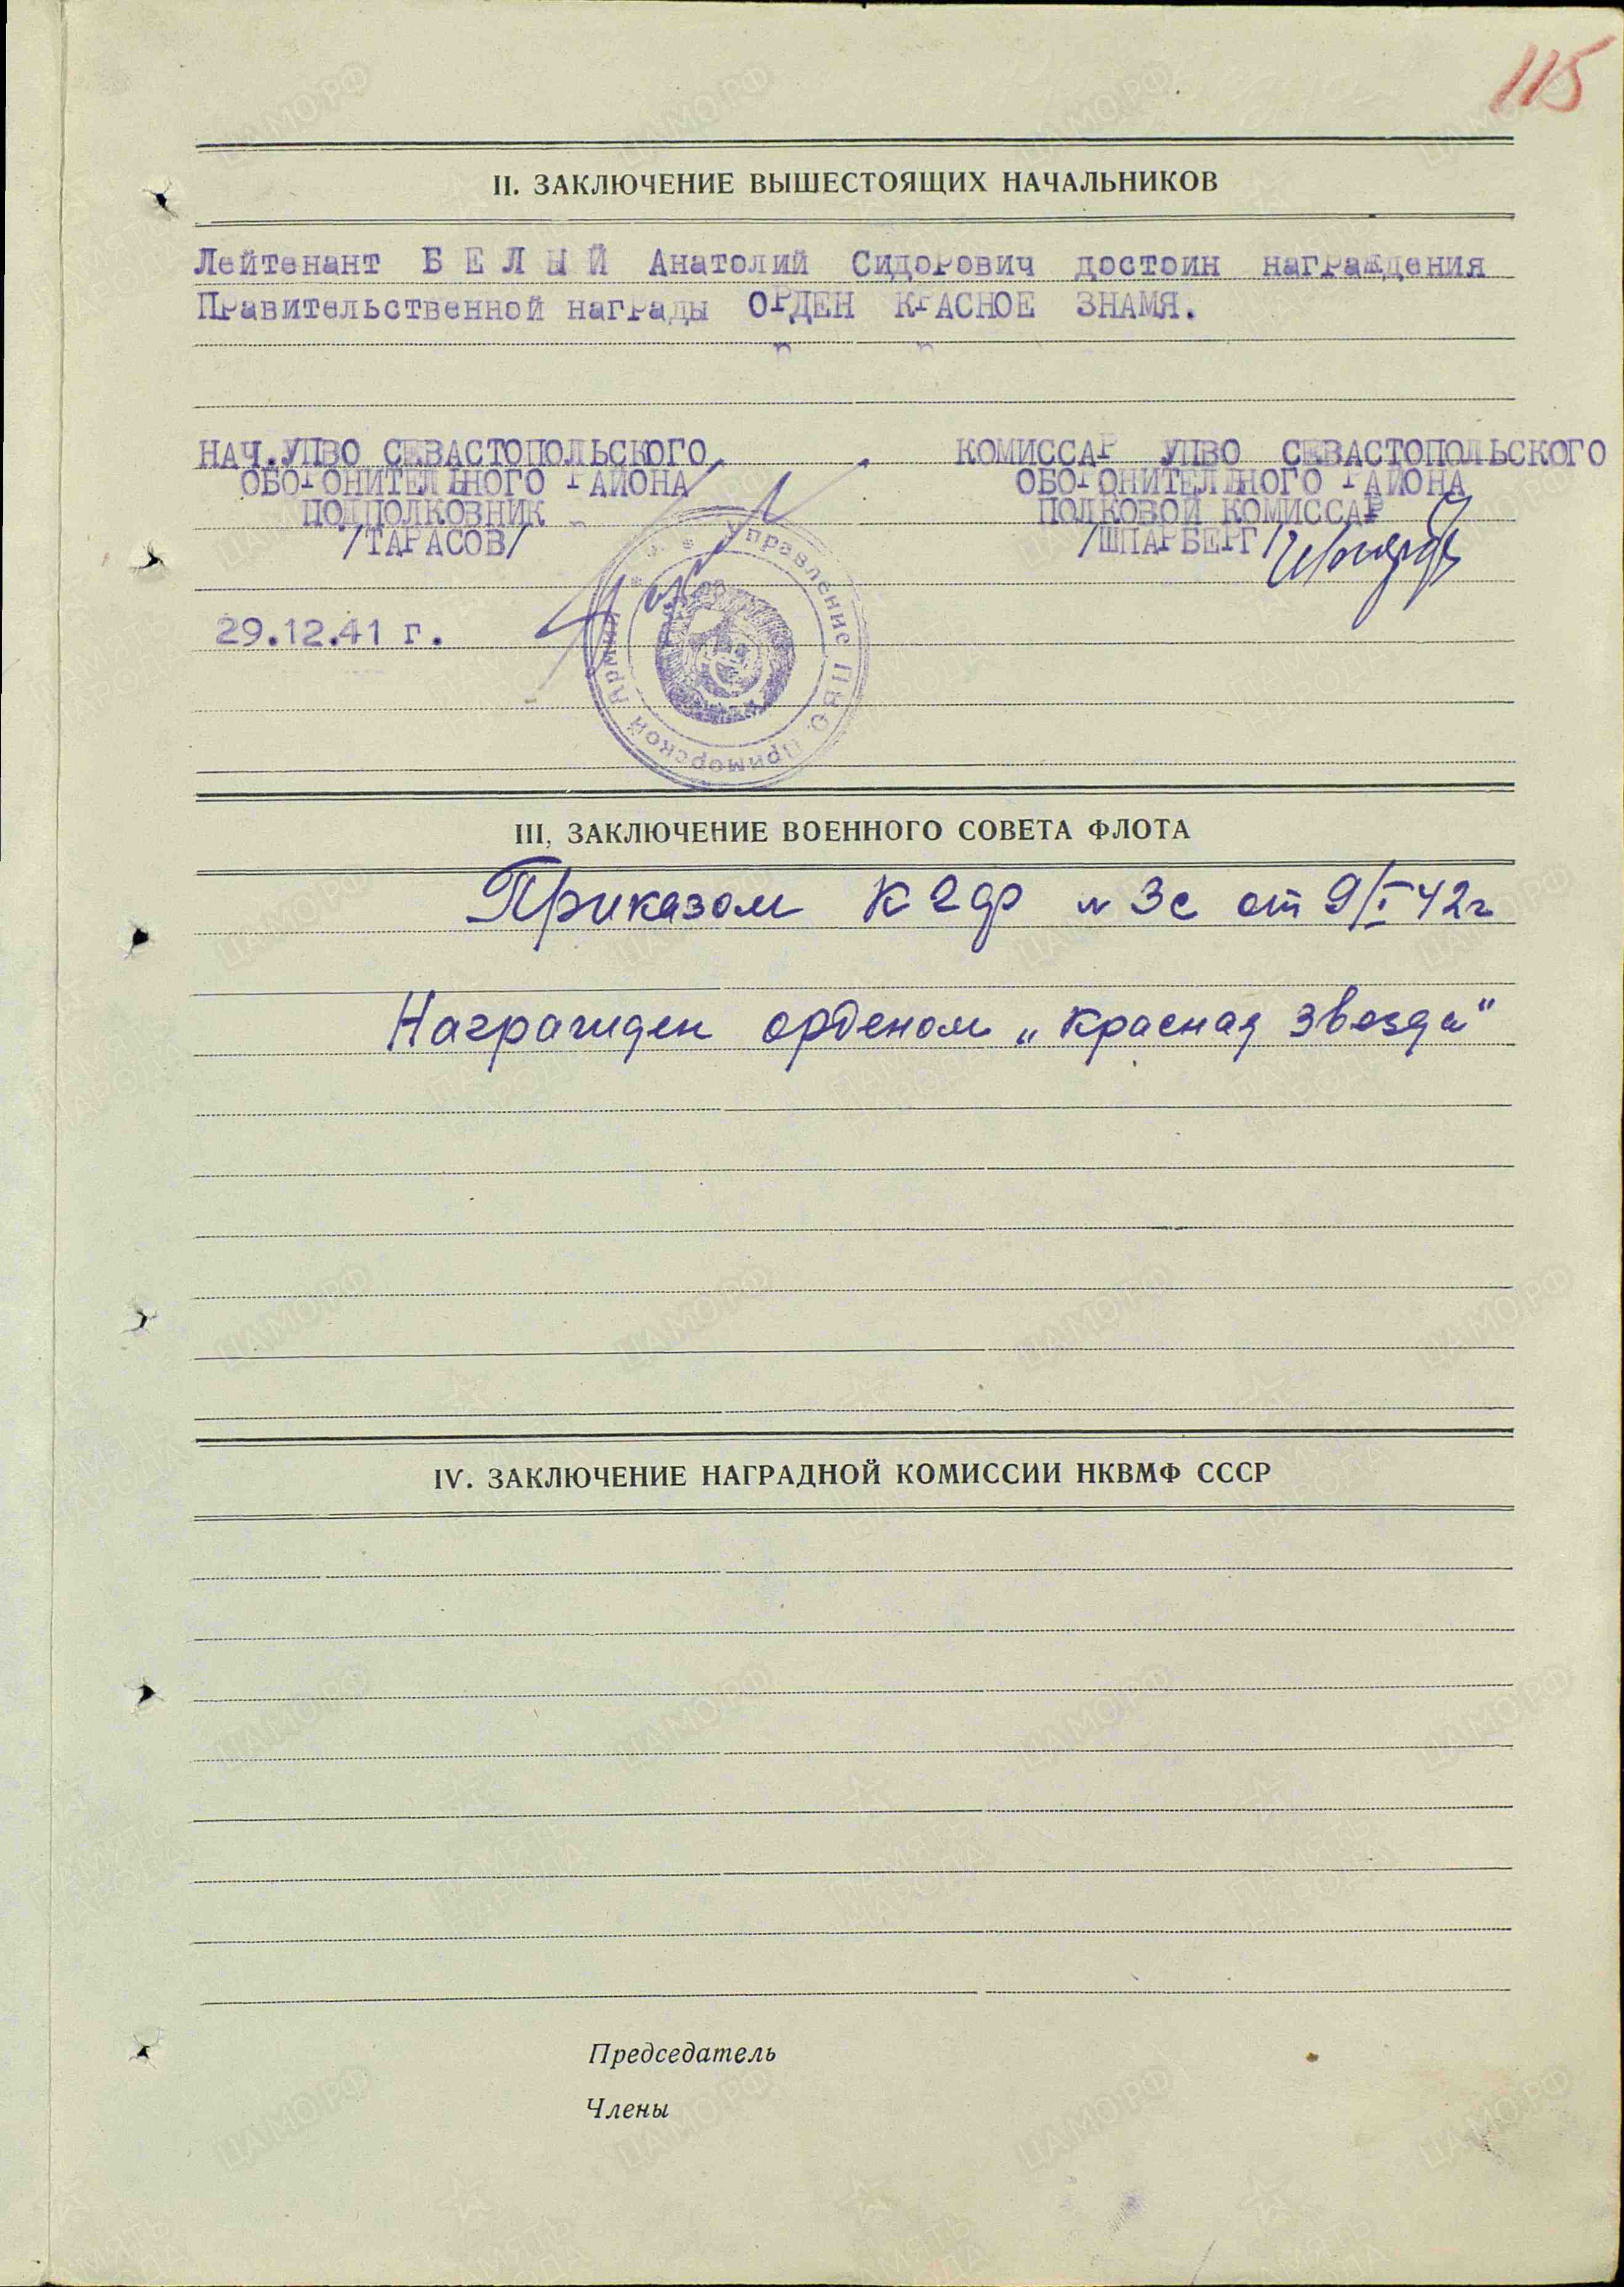 115
II. ЗАКЛЮЧЕНИЕ ВЫШЕСТОЯЩИХ НАЧАЛЬНИКОВ
Лейтенант Б Е Л Ы Й Анатолий Сидорович достоин награждения
Правительственной награды ОРДЕН КРАСНОЕ ЗНАМЯ.
НАЧ.УПВО СЕВАСТОПОЛЬСКОГО
ОБОРОНИТЕЛЬНОГО РАЙОНА
ПОДПОЛКОВНИК
/ТАРАСОВ/
КОМИССАР УПВО СЕВАСТОПОЛЬСКОГО
ОБОРОНИТЕЛЬНОГО РАЙОНА
ПОЛКОВОЙ КОМИССАР
/ШПАРБЕРГ/
29.12.41 г.
Управление ПВО Приморской Армии
III, ЗАКЛЮЧЕНИЕ ВОЕННОГО СОВЕТА ФЛОТА
Приказом К ЧФ № 3с от 9/I-42г
Награжден орденом „Красная Звезда"
IV. ЗАКЛЮЧЕНИЕ НАГРАДНОЙ КОМИССИИ НКВМФ СССР
Председатель
Члены
ЦАМО.РФ
ПАМЯТЬ НАРОДА